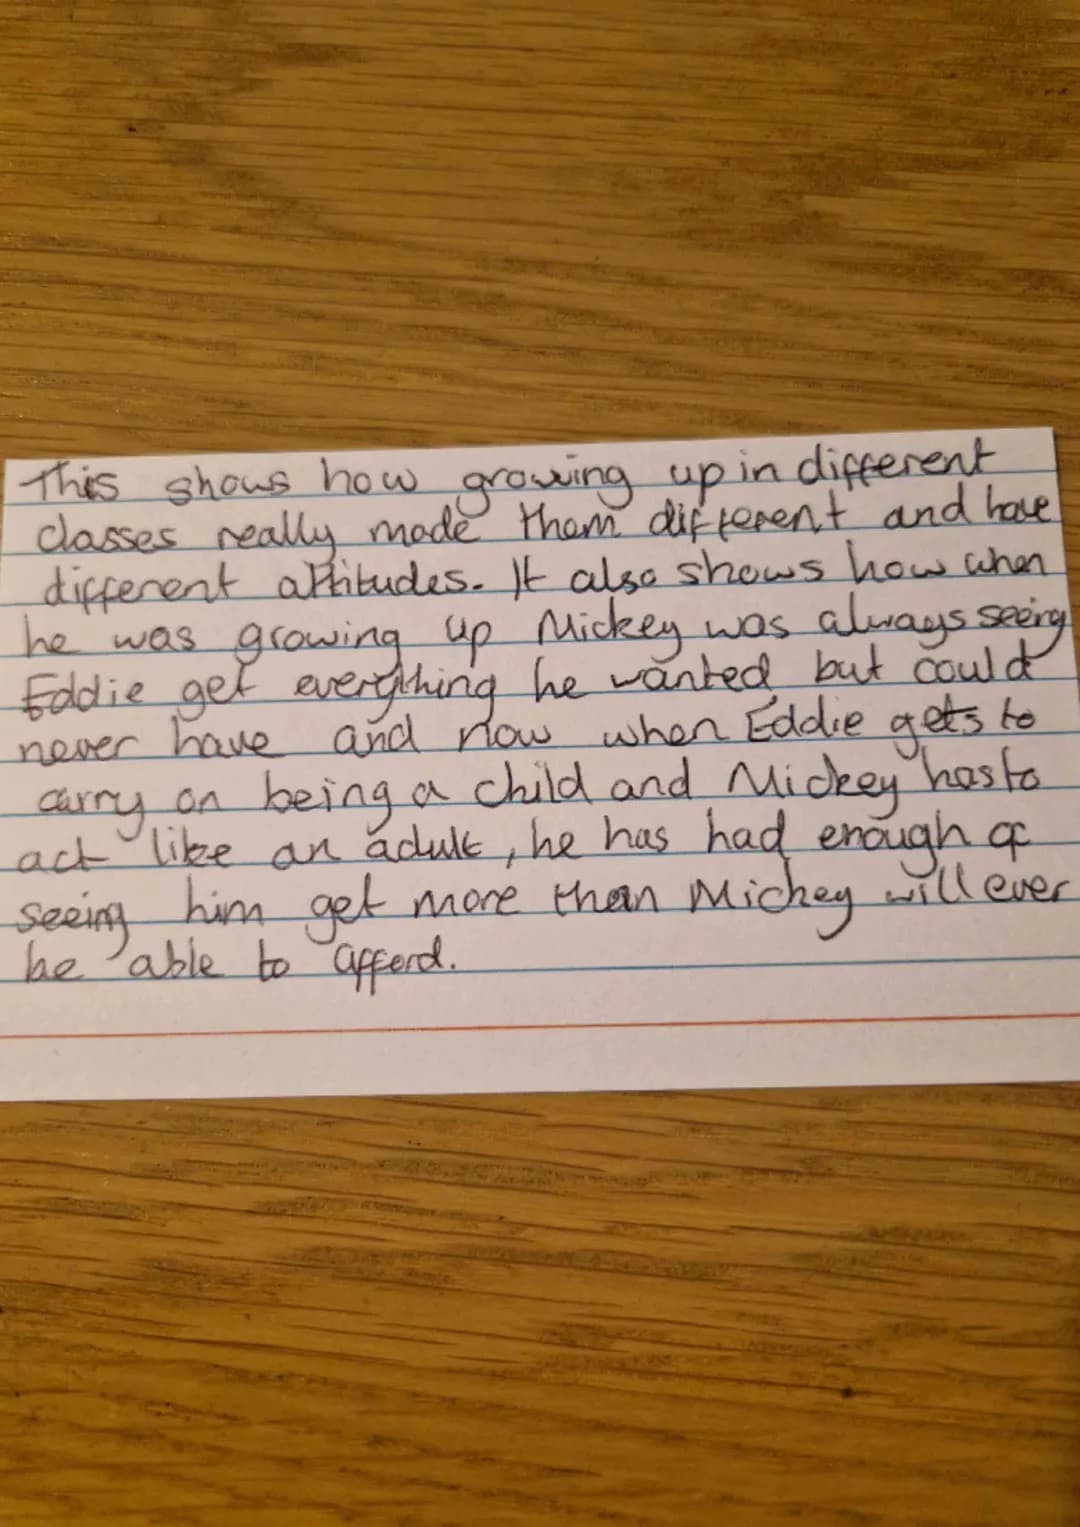 This shows how growing up in different
classes really made them different and have
different attitudes. It also shows how when
he was growing up Mickey was always seeing
Eddie get everything he wanted but could
never have and now when Eddie gets to
carry on being a child and Mickey has to
act like an adult, he has had enough of
seeing him get more than Mickey will ever
be able to afford.